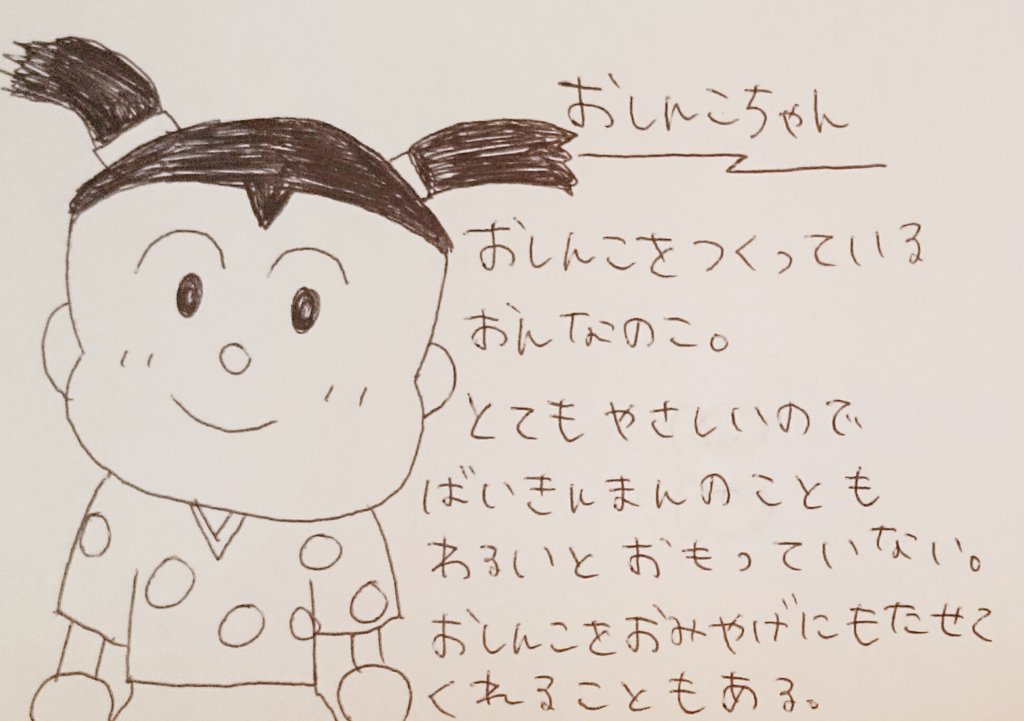 おしんこちゃん
おしんこをつくっている
おんなのこ。
とてもやさしいので
ばいきんまんのことも
わるいとおもっていない。
おしんこをおみやげにもたせて
くれることもある。